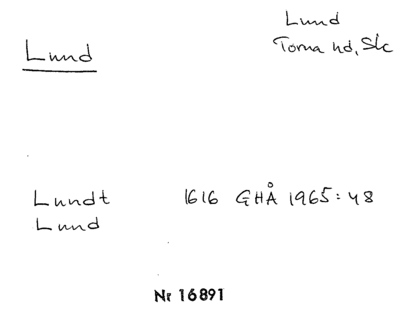 Lund
Torna hd, Sk
Lund
Lundt 1616 GHÅ 1965:48
Lund
Nr 16891